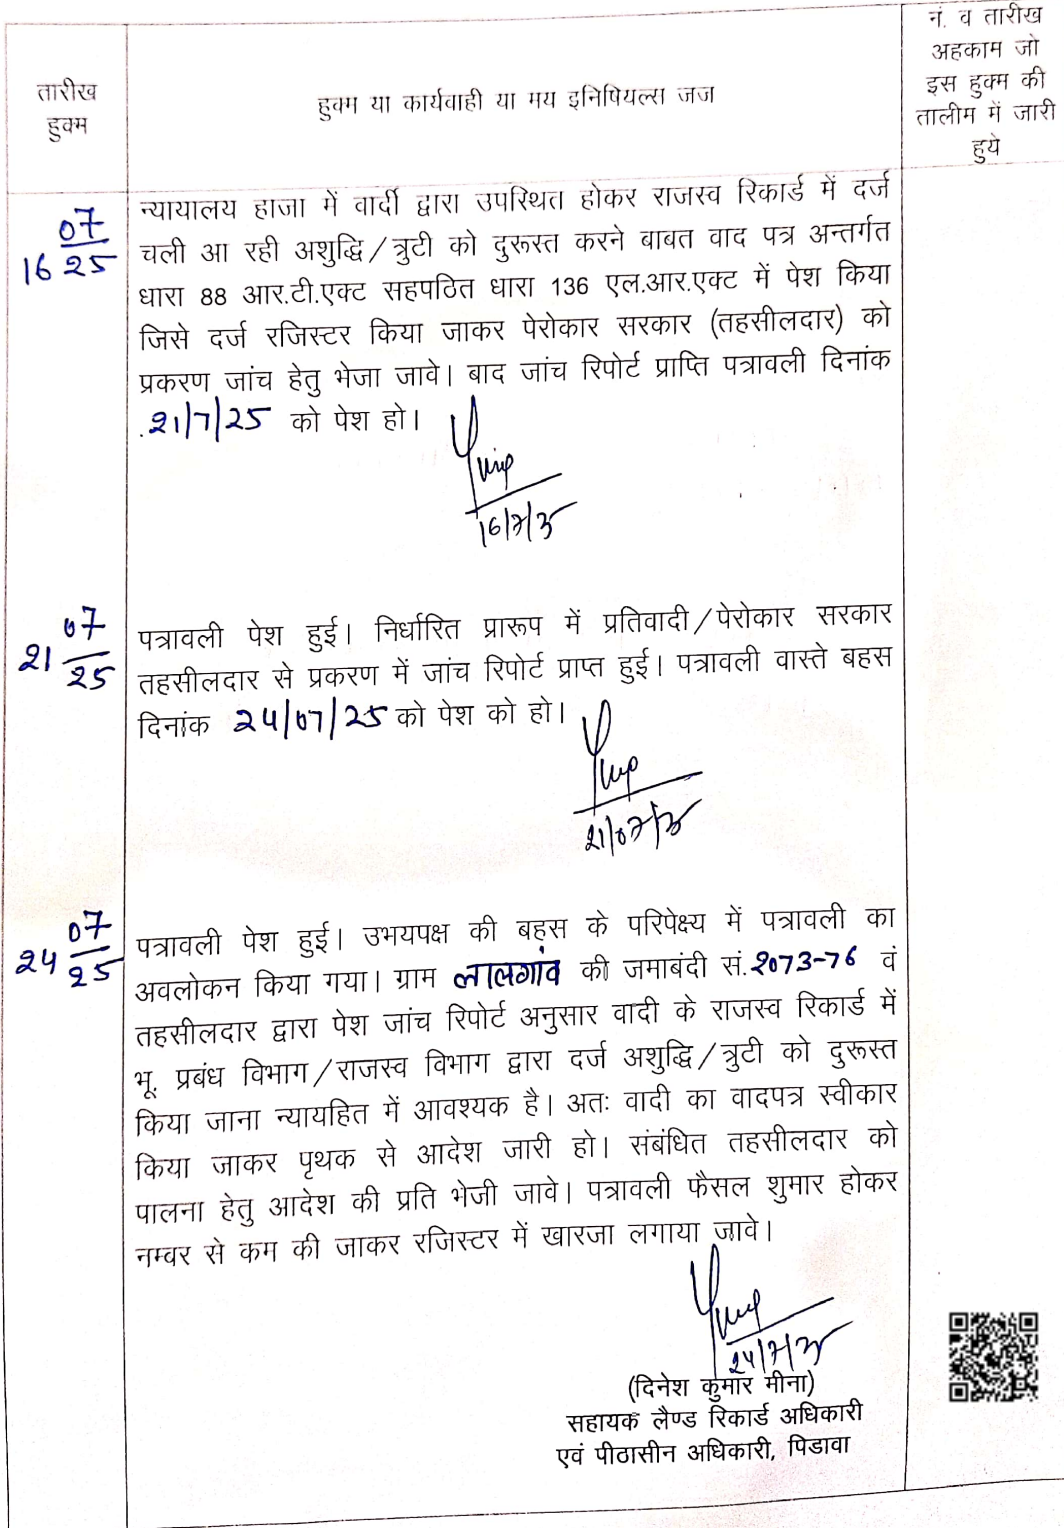 तारीख
हुक्म
हुक्म या कार्यवाही या मय इनिषियल्स जज
नं. व तारीख
अहकाम जो
इस हुक्म की
तालीम में जारी
हुये
16 07/25
न्यायालय हाजा में वार्दी द्वारा उपस्थित होकर राजस्व रिकार्ड में दर्ज
चली आ रही अशुद्धि/त्रुटी को दुरूस्त करने बाबत वाद पत्र अन्तर्गत
धारा 88 आर.टी.एक्ट सहपठित धारा 136 एल.आर.एक्ट में पेश किया
जिसे दर्ज रजिस्टर किया जाकर पेरोकार सरकार (तहसीलदार) को
प्रकरण जांच हेतु भेजा जावे। बाद जांच रिपोर्ट प्राप्ति पत्रावली दिनांक
.21/7/25 को पेश हो।
16/7/25
21 07/25
पत्रावली पेश हुई। निर्धारित प्रारूप में प्रतिवादी/पेरोकार सरकार
तहसीलदार से प्रकरण में जांच रिपोर्ट प्राप्त हुई। पत्रावली वास्ते बहस
दिनांक 24/07/25 को पेश को हो।
21/07/25
24 07/25
पत्रावली पेश हुई। उभयपक्ष की बहस के परिपेक्ष्य में पत्रावली का
अवलोकन किया गया। ग्राम लालगांव की जमाबंदी सं. 2073-76 वं
तहसीलदार द्वारा पेश जांच रिपोर्ट अनुसार वादी के राजस्व रिकार्ड में
भू. प्रबंध विभाग/राजस्व विभाग द्वारा दर्ज अशुद्धि/त्रुटी को दुरूस्त
किया जाना न्यायहित में आवश्यक है। अतः वादी का वादपत्र स्वीकार
किया जाकर पृथक से आदेश जारी हो। संबंधित तहसीलदार को
पालना हेतु आदेश की प्रति भेजी जावे। पत्रावली फैसल शुमार होकर
नम्बर से कम की जाकर रजिस्टर में खारजा लगाया जावे।
24/7/25
(दिनेश कुमार मीना)
सहायक लैण्ड रिकार्ड अधिकारी
एवं पीठासीन अधिकारी, पिडावा